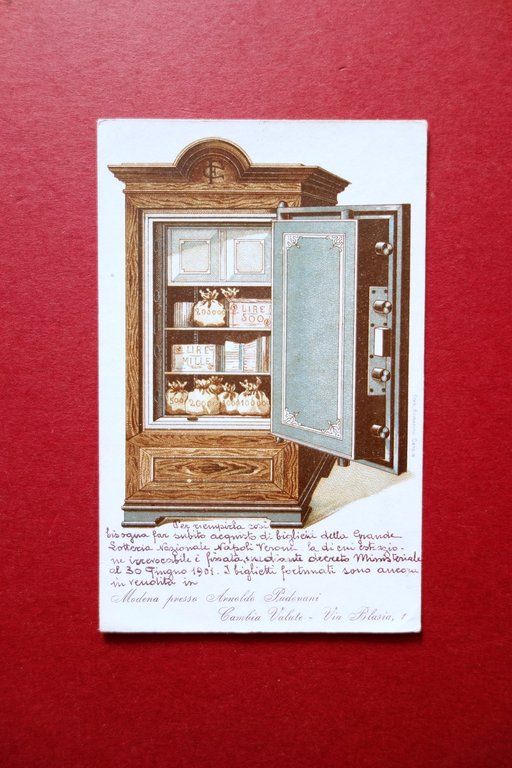 LIRE
500
200000
LIRE
MILLE
500
200
100
100
Per riempirla così
bisogna far subito acquisto di biglietti della Grande
Lotteria Nazionale Napoli Verona la di cui estrazio-
ne irrevocabile è fissata mediante decreto Ministeriale
al 30 Giugno 1901. I biglietti fortunati sono ancora
in vendita in
Modena presso Arnoldo Padovani
Cambia Valute - Via Blasia, 1